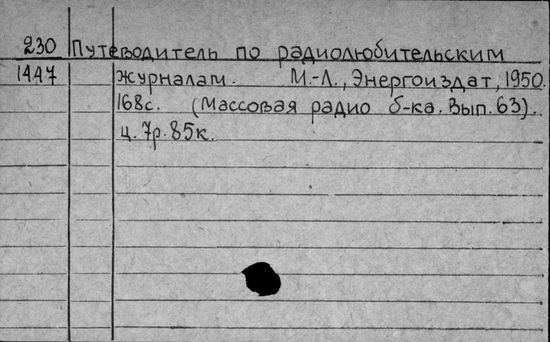 230 Путеводитель по радиолюбительским
1447 журналам. М.-Л., Энергоиздат, 1950.
168с. (Массовая радио б-ка. Вып. 63).
ц. 7р. 85к.